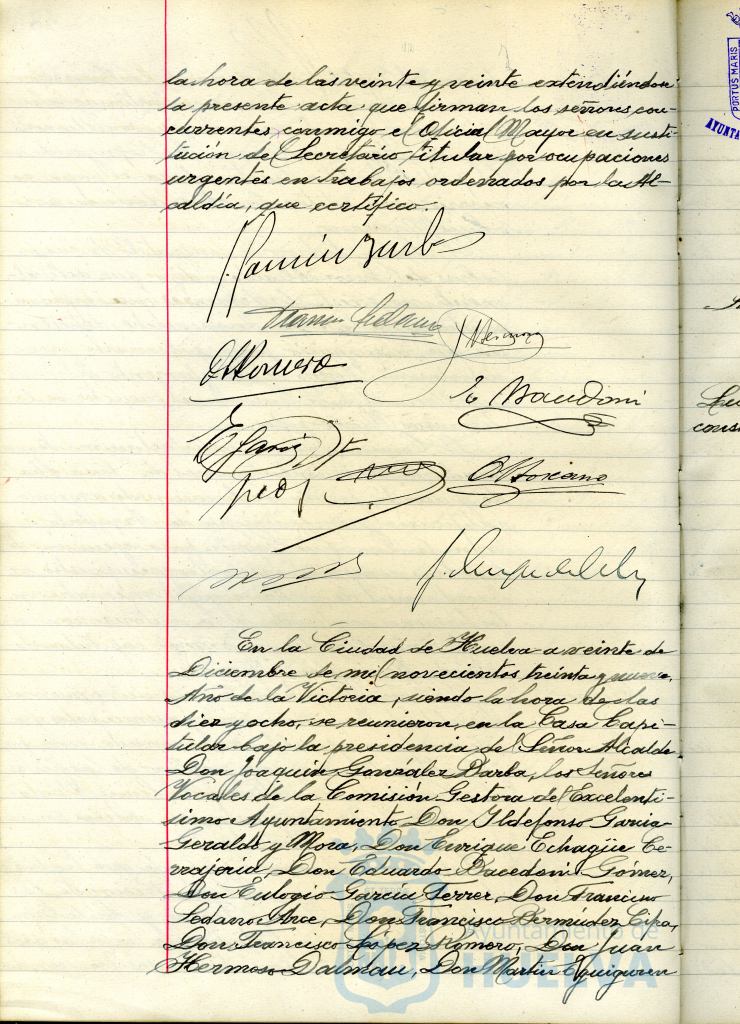 la hora de las veinte y veinte extendiéndose
la presente acta que firman los señores con-
currentes conmigo el Oficial Mayor en susti-
tución del Secretario titular por ocupaciones
urgentes en trabajos ordenados por la Al-
caldía, que certifico.
PORTUS MARIS
AYUNTA
Romero
E. Bacedoni
En la Ciudad de Huelva a veinte de
Diciembre de mil novecientos treinta y nueve,
Año de la Victoria, siendo la hora de las
diez y ocho, se reunieron en la Casa Capi-
tular bajo la presidencia del Señor Alcalde
Don Joaquín González Barba, los Señores
Vocales de la Comisión Gestora del Excelentí-
simo Ayuntamiento Don Ildefonso García
Geraldo y Mora, Don Enrique Echagüe Ce-
rrajería, Don Eduardo Bacedoni Gómez,
Don Eulogio García Ferrer, Don Francisco
Sedano Arce, Don Francisco Bermúdez Cires,
Don Francisco López Romero, Don Juan
Hermoso Dalmau, Don Martín Eguiguren
Ayuntamiento de
HUELVA